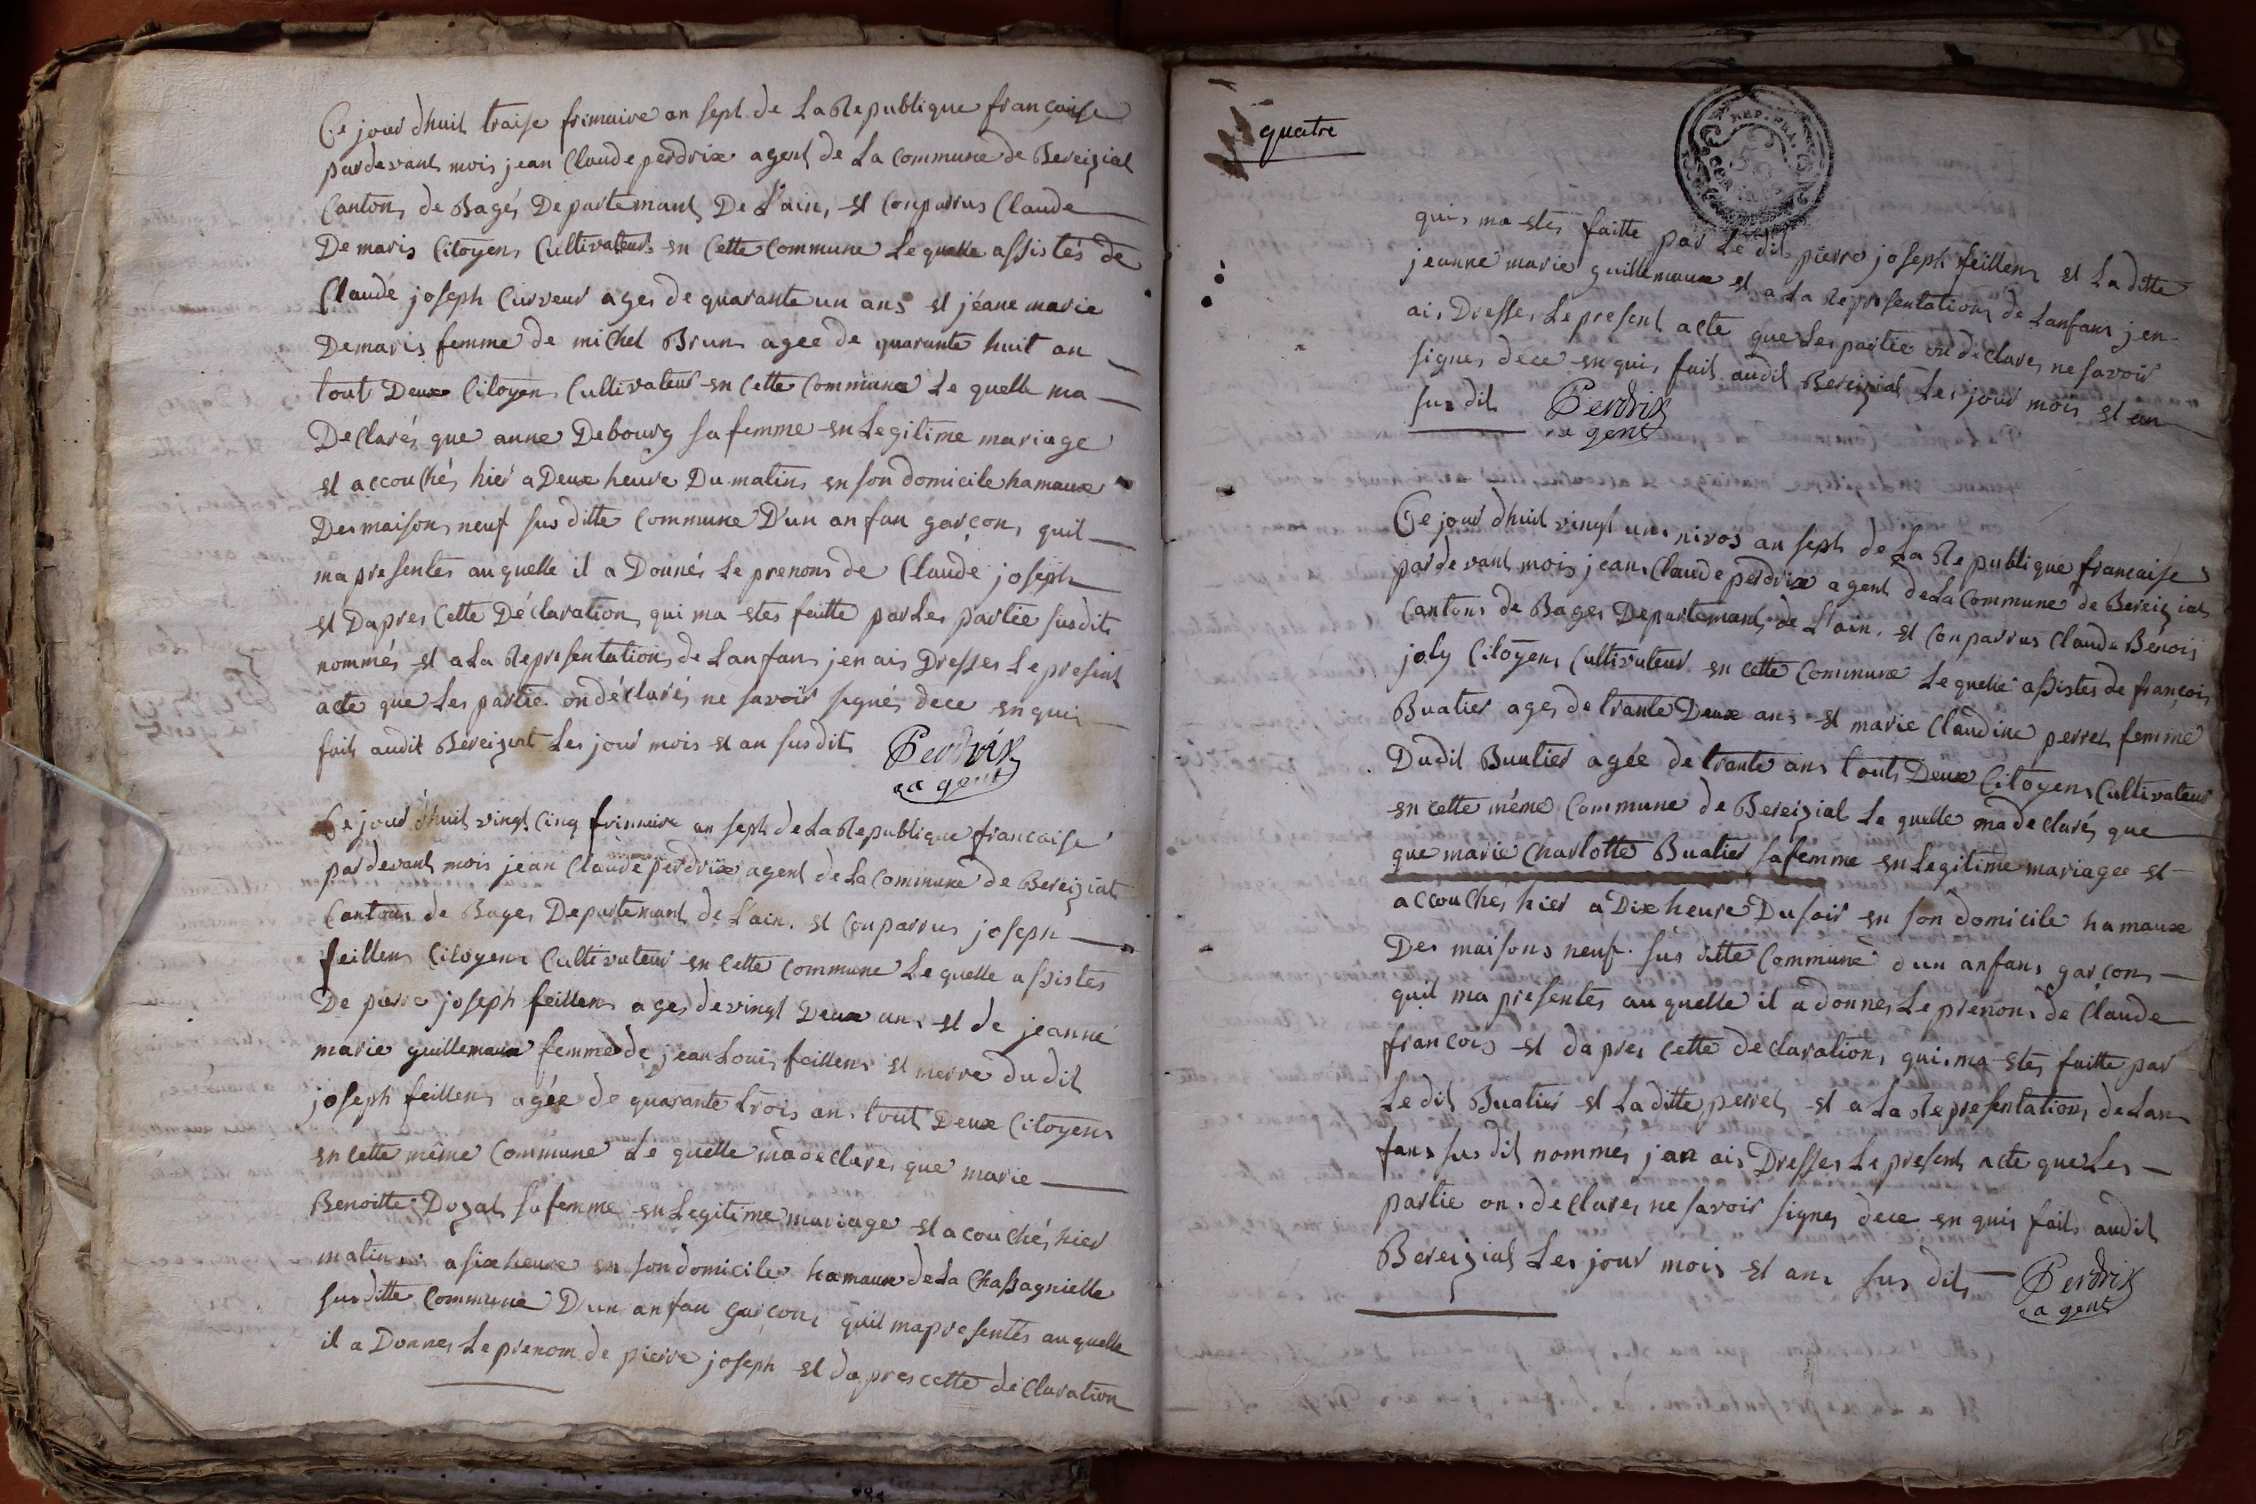 Ce jour dhuit traise frimaire an sept de La Republique française
pardevant mois jean Claude perdrix agent de La Commune de Bereizial
Canton de Bagé Departemant De L'ain, et conparrus Claude
Demaris Citoyen Cultivateur en Cette Commune Le quelle assistés de
Claude joseph Curveur ages de quarante un ans et jéane marie
Demaris femme de michel Brun agée de quarante huit an
tout Deux Citoyen Cultivateur en Cette Commune Le quelle ma
Declarés que anne Debourg sa femme en Legitime mariage
et accouchés hier a Deux heure Du matin en son domicile hamaux
Des maison neuf sus ditte Commune D'un anfan garçon, quil
ma presentes auquelle il a Donnés Le prenom de Claude joseph
et Dapres Cette Déclaration qui ma etes faitte par Les partie susdit
nommés et a La Representation de Lanfan jenais Dresses Le present
acte que Les partie on déclarés ne savoir signés dece enquis
fait audit Bereiziat Les jour mois et an susdit Perdrix
agent
Ce jour dhuit vingt cinq frimaire an sept de La Republique francaise
pardevant mois jean Claude perdrix agent de La Commune de Bereiziat
Canton de Bages Departemant de L'ain. et Conparrus joseph
feillens Citoyen Cultivateur en Cette Commune Le quelle assistes
De pierre joseph feillens ages de vingt Deux an et de jeanne
marie guillemaux femme de jean Louis feillens et merre dudit
joseph feillens agée de quarante trois an tout Deux Citoyens
en Cette même Commune Le quelle ma declares que marie
Benoitte Dozat sa femme en Legitime mariage et a couchés hier
matin a six heure en son domicile hamaux de La Chassagnielle
sus ditte Commune D'un anfan garçon, quil ma presentes auquelle
il a Donnes Le prenom de pierre joseph et dapres cette déclaration
quatre
REP. FRA.
qui, ma etes faitte par Le dit pierre joseph feillens et La ditte
jeanne marie guillemaux et a La Representation de Lanfan jen
ais Dresses Le present acte que Les partie on declares ne savoir
signes dece enquis fait audit Bereizial Les jour mois et an
sus dit Perdrix
agent
Ce jour dhuit vingt un nivos an sept de La Republique francaise
pardevant mois jean Claude perdrix agent de La Commune de Bereizial
Canton de Bages Departemant de L'ain, et Conparrus Claude Benois
joly Citoyen Cultivateur en cette Commune Le quelle assistes de françois
Buatier ages de trante Deux ans et marie Claudine perret femme
Dudit Buatier agée de trante ans touts Deux Citoyens Cultivateur
en cette même Commune de Bereizial Le quelle ma declarés que
que marie Charlotte Buatier sa femme en Legitime mariagee et
accouches hier a Dix heure Du soir en son domicile hamaux
Des maisons neuf sus ditte Commune d'un anfan garçon
quil ma presentes auquelle il a donnes Le prenom de Claude
francois et dapres cette declaration, qui, ma etes faitte par
Le dit Buatier et La ditte perret et a La Representation de Lan
fans sus dit nommés jan ais Dresses Le present acte que Les
partie on declares ne savoir signes dece enquis fait audit
Bereizial Les jour mois et an sus dit Perdrix
agent